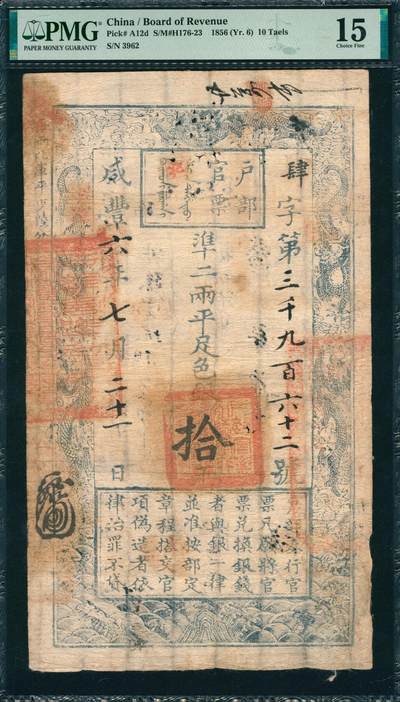 PMG
PAPER MONEY GUARANTY
China / Board of Revenue
Pick# A12d S/M#H176-23 1856 (Yr. 6) 10 Taels
S/N 3962
15
Choice Fine
戶部
官票
肆字第三千九百六十二號
準二兩平足色
拾
咸豐六年七月二十一日
行官
票凡願將官
票兌換銀錢
者與銀一律
並准按部定
章程搭交官
項偽造者依
律治罪不貸